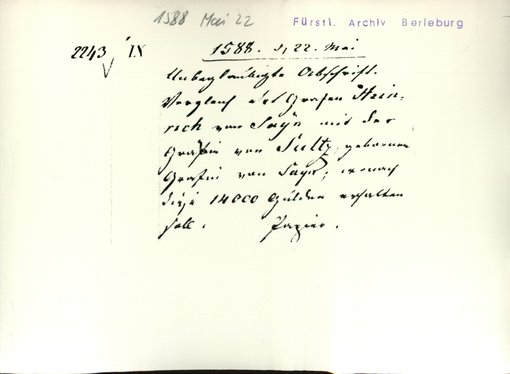 1588 Mai 22
Fürstl. Archiv Berleburg
2243 IX
1588. d, 22. Mai
Unbeglaubigte Abschrift.
Vergleich des Grafen Hein-
rich von Sayn mit der
Gräfin von Sultz, geborenen
Gräfin von Sayn, wonach
diese 14000 Gulden erhalten
soll. Papier.